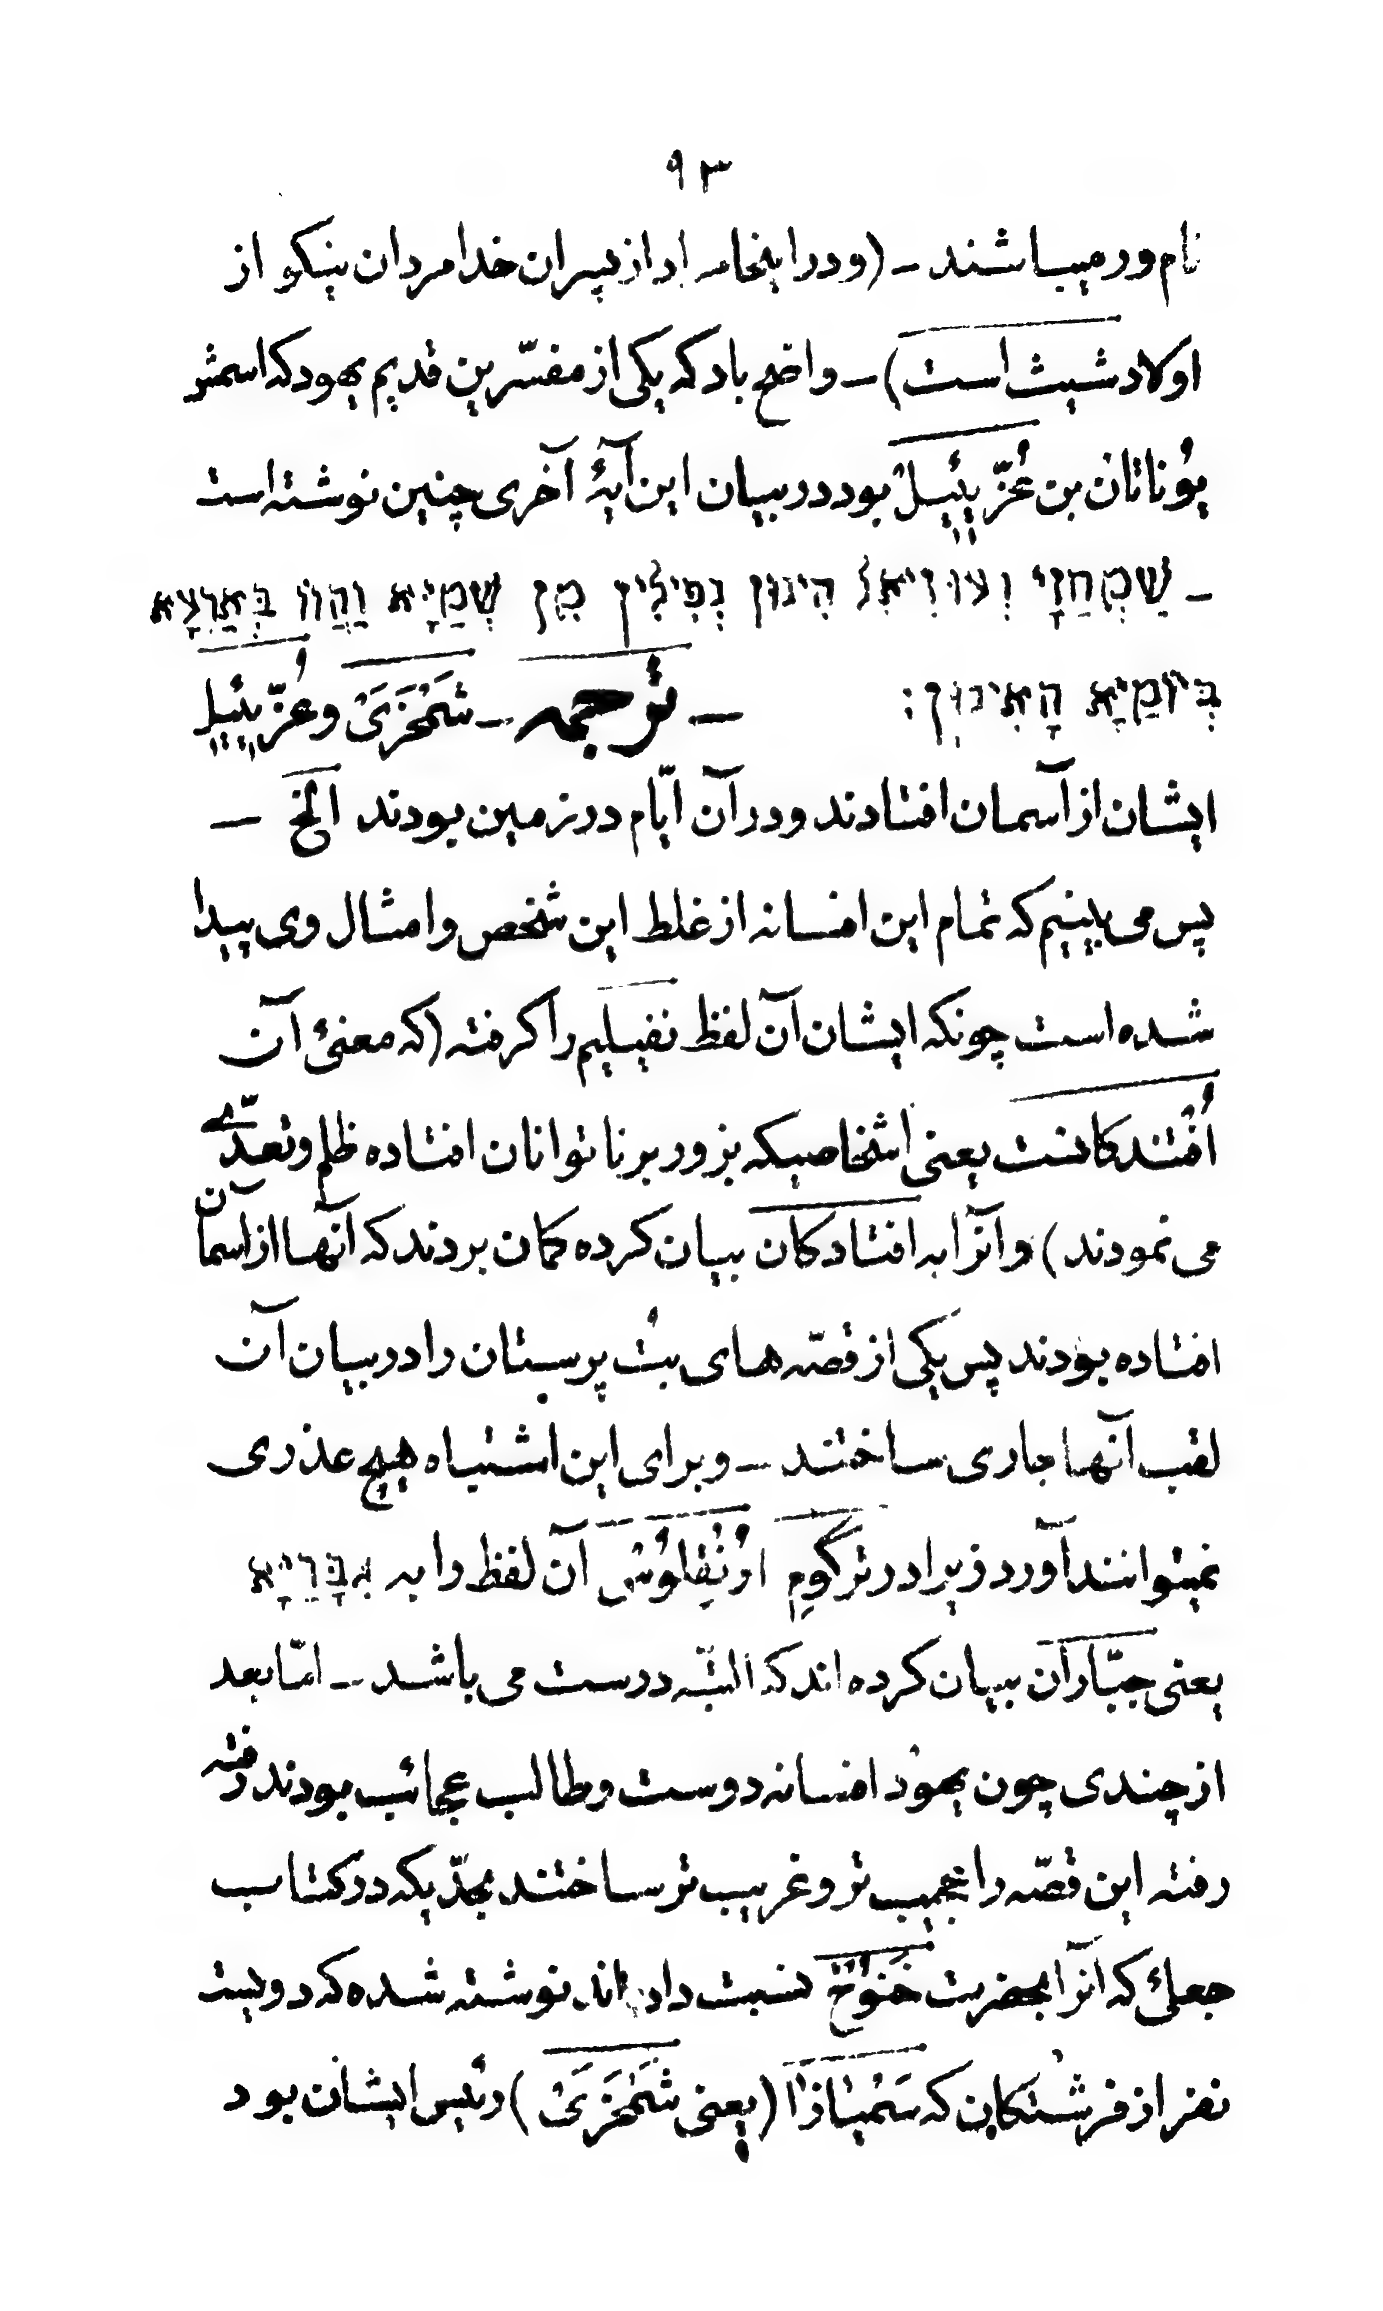 ۹۳
نام ور میباشند ـ (و در اینجا مراد از پسران خدا مردان نیکو از
اولاد شیث است) ـ واضح باد که یکی از مفسّرین قدیم یهود که اسمش
یُوناتان بن عُزّیئیل بود در بیان این آیهٔ آخری چنین نوشته است
ـ שַׁמְחַזָי וְעוּזִיאֵל הִינוּן נְפִילִין מִן שְׁמַיָא וַהֲווֹ בְּאַרְעָא
בְּיוֹמַיָא הָאִינוּן: ـ ترجمه ـ شَمْحَزَیْ و عُزّیئیل
ایشان از آسمان افتادند و در آن ایّام در زمین بودند الخ ـ
پس می بینیم که تمام این افسانه از غلط این شخص و امثال وی پیدا
شده است چونکه ایشان آن لفظ نفیلیم را گرفته (که معنیٔ آن
اُفْتَندگانست یعنی اشخاصیکه بزور بر ناتوانان افتاده ظلم و تعدّی
می نمودند) و آنرا به افتادگان بیان کرده گمان بردند که آنها از آسمان
افتاده بودند پس یکی از قصّه های بُت پرستان را در بیان آن
لقب آنها جاری ساختند ـ و برای این اشتباه هیچ عذری
نمیتوانند آورد زیرا در ترگومِ اُنْقِلوُسْ آن لفظ را به גִבָּרַיָא
یعنی جبّاران بیان کرده اند که البتّه درست می باشد ـ امّا بعد
از چندی چون یهود افسانه دوست و طالب عجائب بودند رفته
رفته این قصّه را عجیب تر و غریب تر ساختند بحدّیکه در کتاب
جعلیٔ که آنرا بحضرت خَنوُخ نسبت داده اند نوشته شده که دویست
نفر از فرشتگان که سَمْیازا (یعنی شَمْحَزَیْ) رئیس ایشان بود